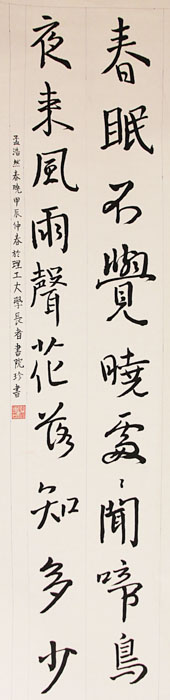 春眠不覺曉處〻聞啼鳥
夜來風雨聲花落知多少
孟浩然春曉甲辰仲春於理工大學長者書院珍書